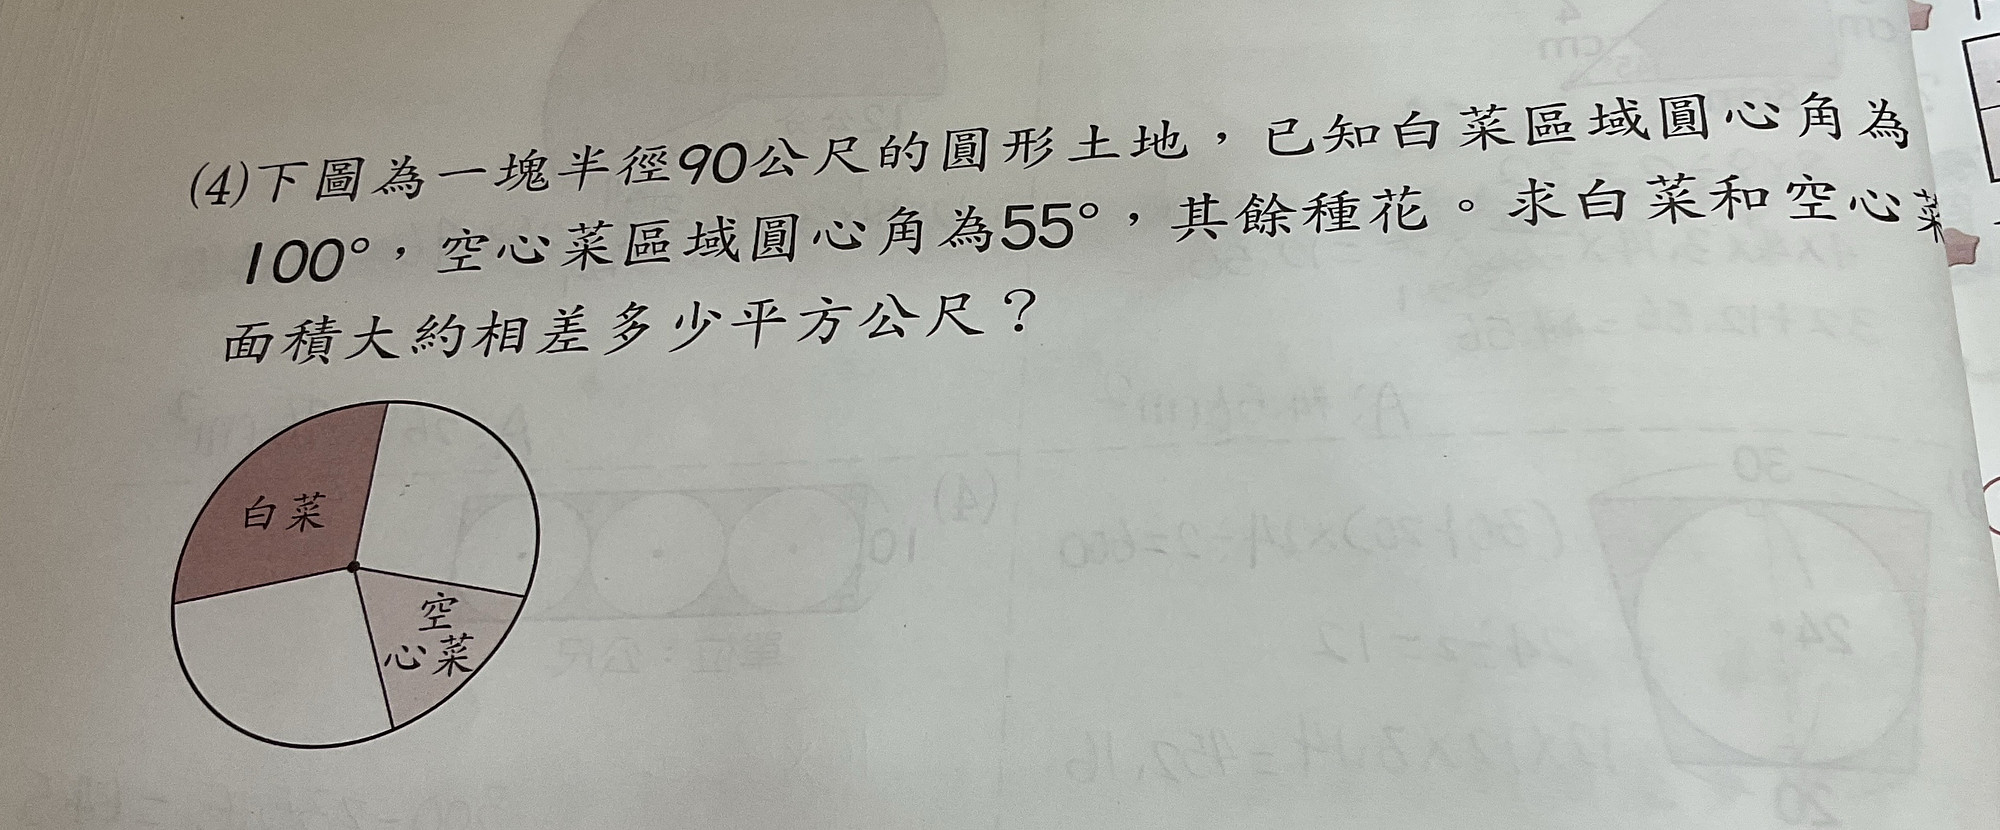 (4)下圖為一塊半徑90公尺的圓形土地，已知白菜區域圓心角為
100°，空心菜區域圓心角為55°，其餘種花。求白菜和空心菜
面積大約相差多少平方公尺？
白菜
空
心菜